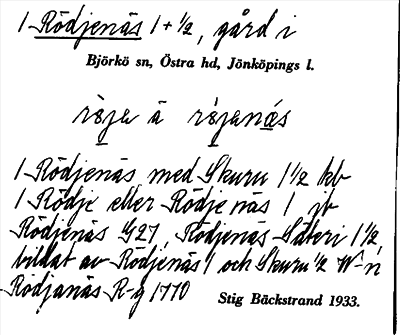 1 Rödjenäs 1 + 1/2, gård i
Björkö sn, Östra hd, Jönköpings l.
rö̀ja å rö̀janæs
1 Rödjenäs med Skuru 1 1/2 kb
1 Rödje eller Rödje näs 1 jb
Rödjenäs G27, Rödjenäs Säteri 1 1/2,
bildat av Rödjenäs 1 och Skuru 1/2 W-n
Rödjanäs R-g 1770
Stig Bäckstrand 1933.